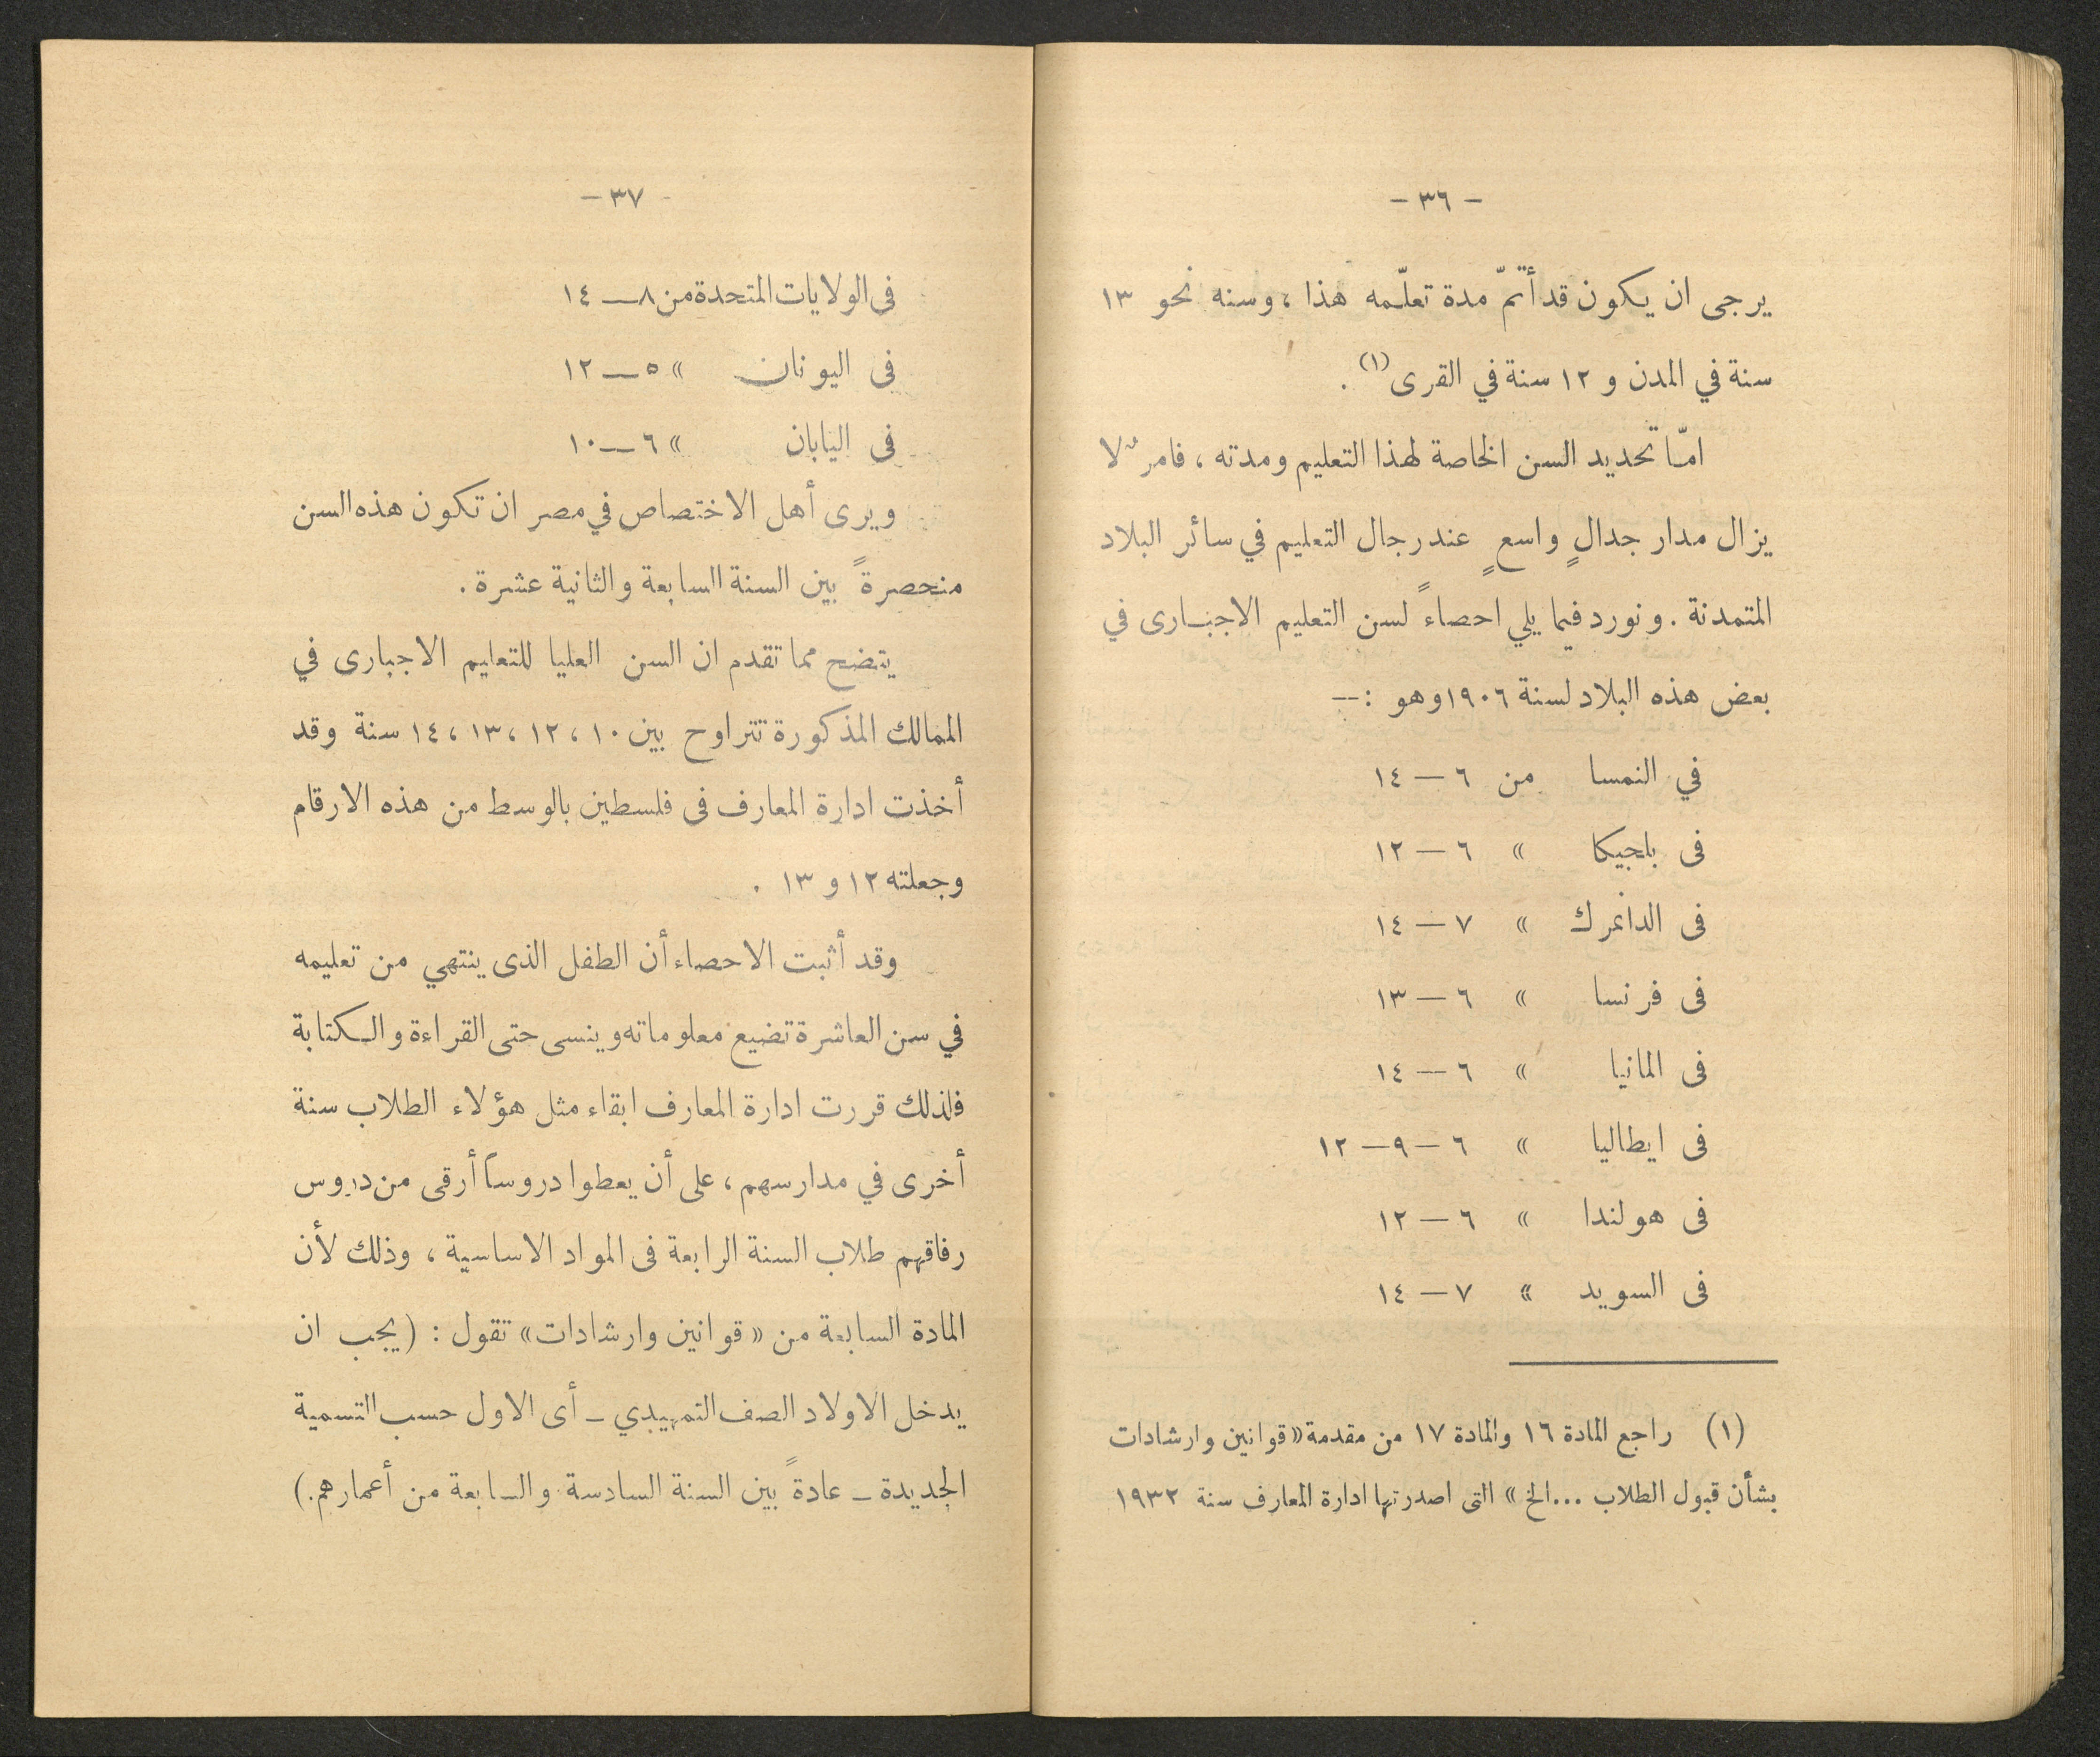 – ٣٦ –
يرجى ان يكون قد أتمّ مدة تعلّمه هذا ، وسنه نحو ١٣
سنة في المدن و ١٢ سنة في القرى (١) .
امّا تحديد السن الخاصة لهذا التعليم ومدته ، فامرٌ لا
يزال مدار جدالٍ واسعٍ عند رجال التعليم في سائر البلاد
المتمدنة . ونورد فيما يلي احصاءً لسن التعليم الاجبارى في
بعض هذه البلاد لسنة ١٩٠٦ وهو : —
في النمسا من ٦ — ١٤
فى بلجيكا » ٦ — ١٢
فى الدانمرك » ٧ — ١٤
فى فرنسا » ٦ — ١٣
فى المانيا » ٦ — ١٤
فى ايطاليا » ٦ — ٩ — ١٢
فى هولندا » ٦ — ١٢
فى السويد » ٧ — ١٤
(١) راجع المادة ١٦ والمادة ١٧ من مقدمة «قوانين وارشادات
بشأن قبول الطلاب ... الخ» التى اصدرتها ادارة المعارف سنة ١٩٣٢
– ٣٧ –
فى الولايات المتحدة من ٨ — ١٤
فى اليونان » ٥ — ١٢
فى اليابان » ٦ — ١٠
ويرى أهل الاختصاص في مصر ان تكون هذه السن
منحصرةً بين السنة السابعة والثانية عشرة .
يتضح مما تقدم ان السن العليا للتعليم الاجبارى في
الممالك المذكورة تتراوح بين ١٠ ، ١٢ ، ١٣ ، ١٤ سنة وقد
أخذت ادارة المعارف فى فلسطين بالوسط من هذه الارقام
وجعلته ١٢ و ١٣ .
وقد أثبت الاحصاء أن الطفل الذى ينتهي من تعليمه
في سن العاشرة تضيع معلوماته وينسى حتى القراءة والكتابة
فلذلك قررت ادارة المعارف ابقاء مثل هؤلاء الطلاب سنة
أخرى في مدارسهم ، على أن يعطوا دروساً أرقى من دروس
رفاقهم طلاب السنة الرابعة فى المواد الاساسية ، وذلك لأن
المادة السابعة من «قوانين وارشادات» تقول : (يجب ان
يدخل الاولاد الصف التمهيدي – أى الاول حسب التسمية
الجديدة – عادةً بين السنة السادسة والسابعة من أعمارهم.)